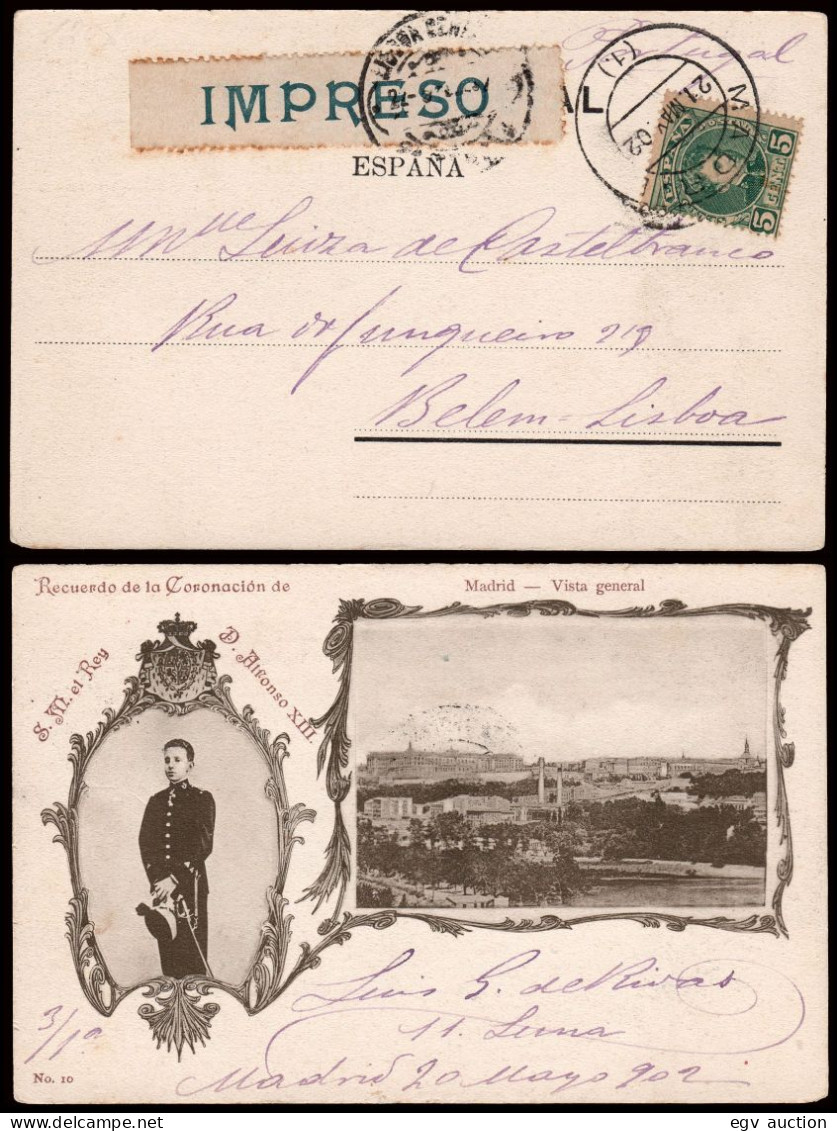 Portugal
IMPRESO AL
ESPAÑA
MADRID
21 MAY 02
(1.)
ESPAÑA
5 CENTS 5
LISBOA CENTRAL
Mlle Luiza de Castelbranco
Rua do Junqueiro 218
Belem-Lisboa
Recuerdo de la Coronación de
S. M. el Rey D. Alfonso XIII.
Madrid — Vista general
Luis G. de Rivas
11. Luna
Madrid 20 Mayo 902
3/1ª
No. 10
egv auction